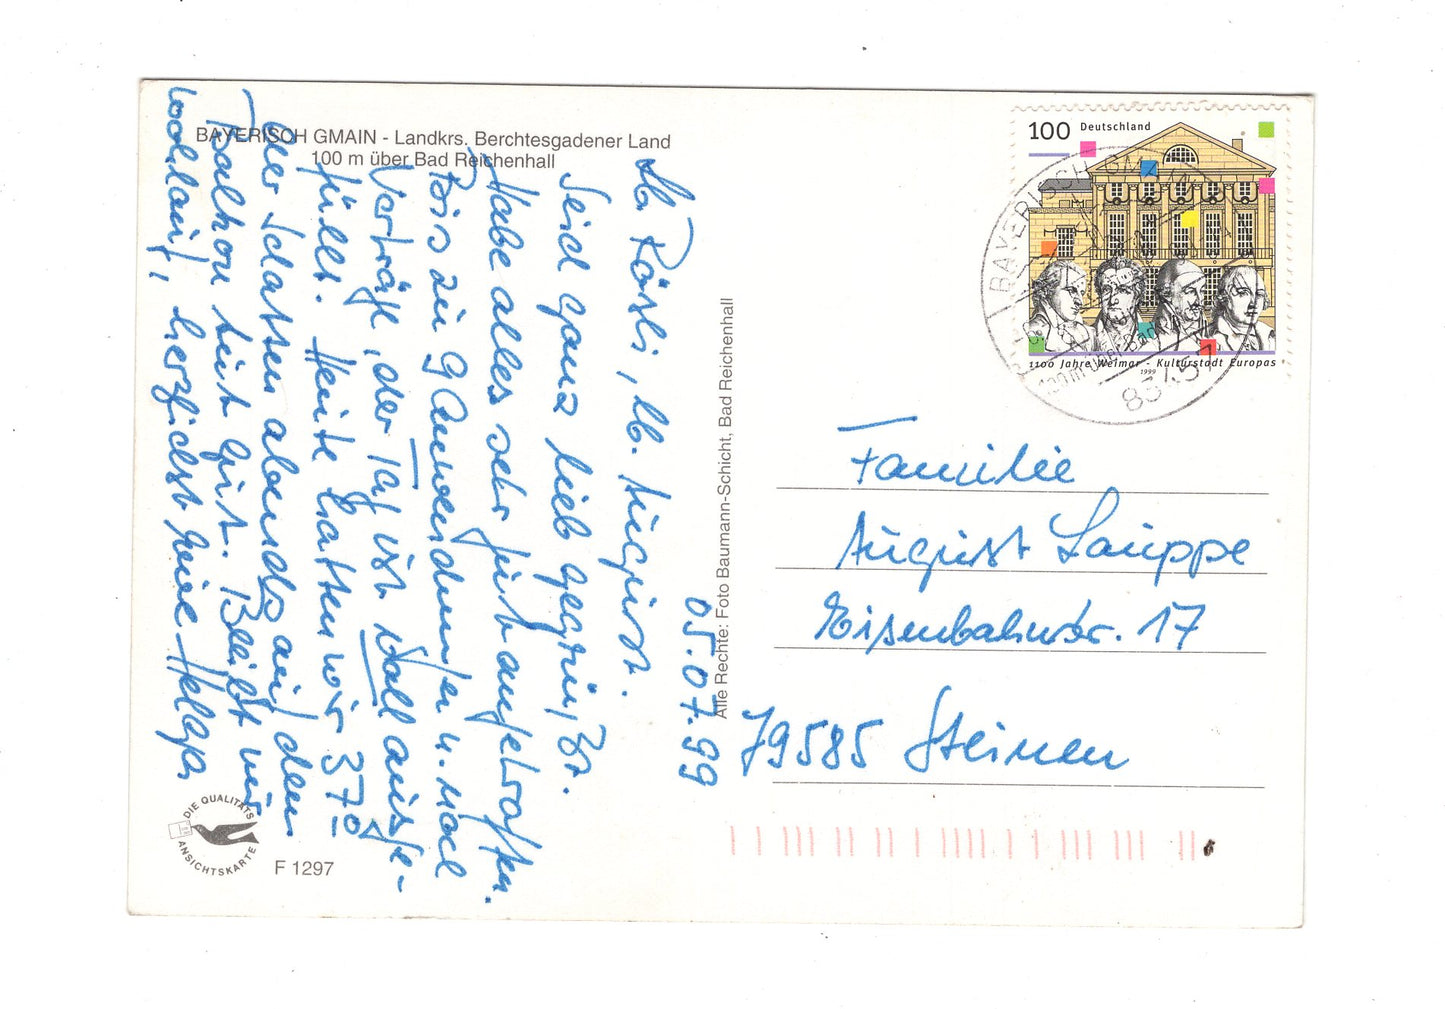 BAYERISCH GMAIN - Landkrs. Berchtesgadener Land
100 m über Bad Reichenhall
05.07.99
lb. Rösli, lb. August.
Seid ganz lieb gegrüßt.
Habe alles sehr gut angetroffen.
Bis zu 9 Anwendungen u. noch
Vorträge, der Tag ist voll ausge-
füllt. Heute hatten wir 37°
der Schatten abends auf dem
Balkon tut gut. Bleibt mir
wohlauf, herzlichst eure Helga
DIE QUALITÄTS
ANSICHTSKARTE
F 1297
Alle Rechte: Foto Baumann-Schicht, Bad Reichenhall
100 Deutschland
1100 Jahre Weimar - Kulturstadt Europas
1999
BAYERISCH GMAIN
100 m über Bad
83457
Familie
August Lauppe
Eisenbahnstr. 17
79585 Steinen